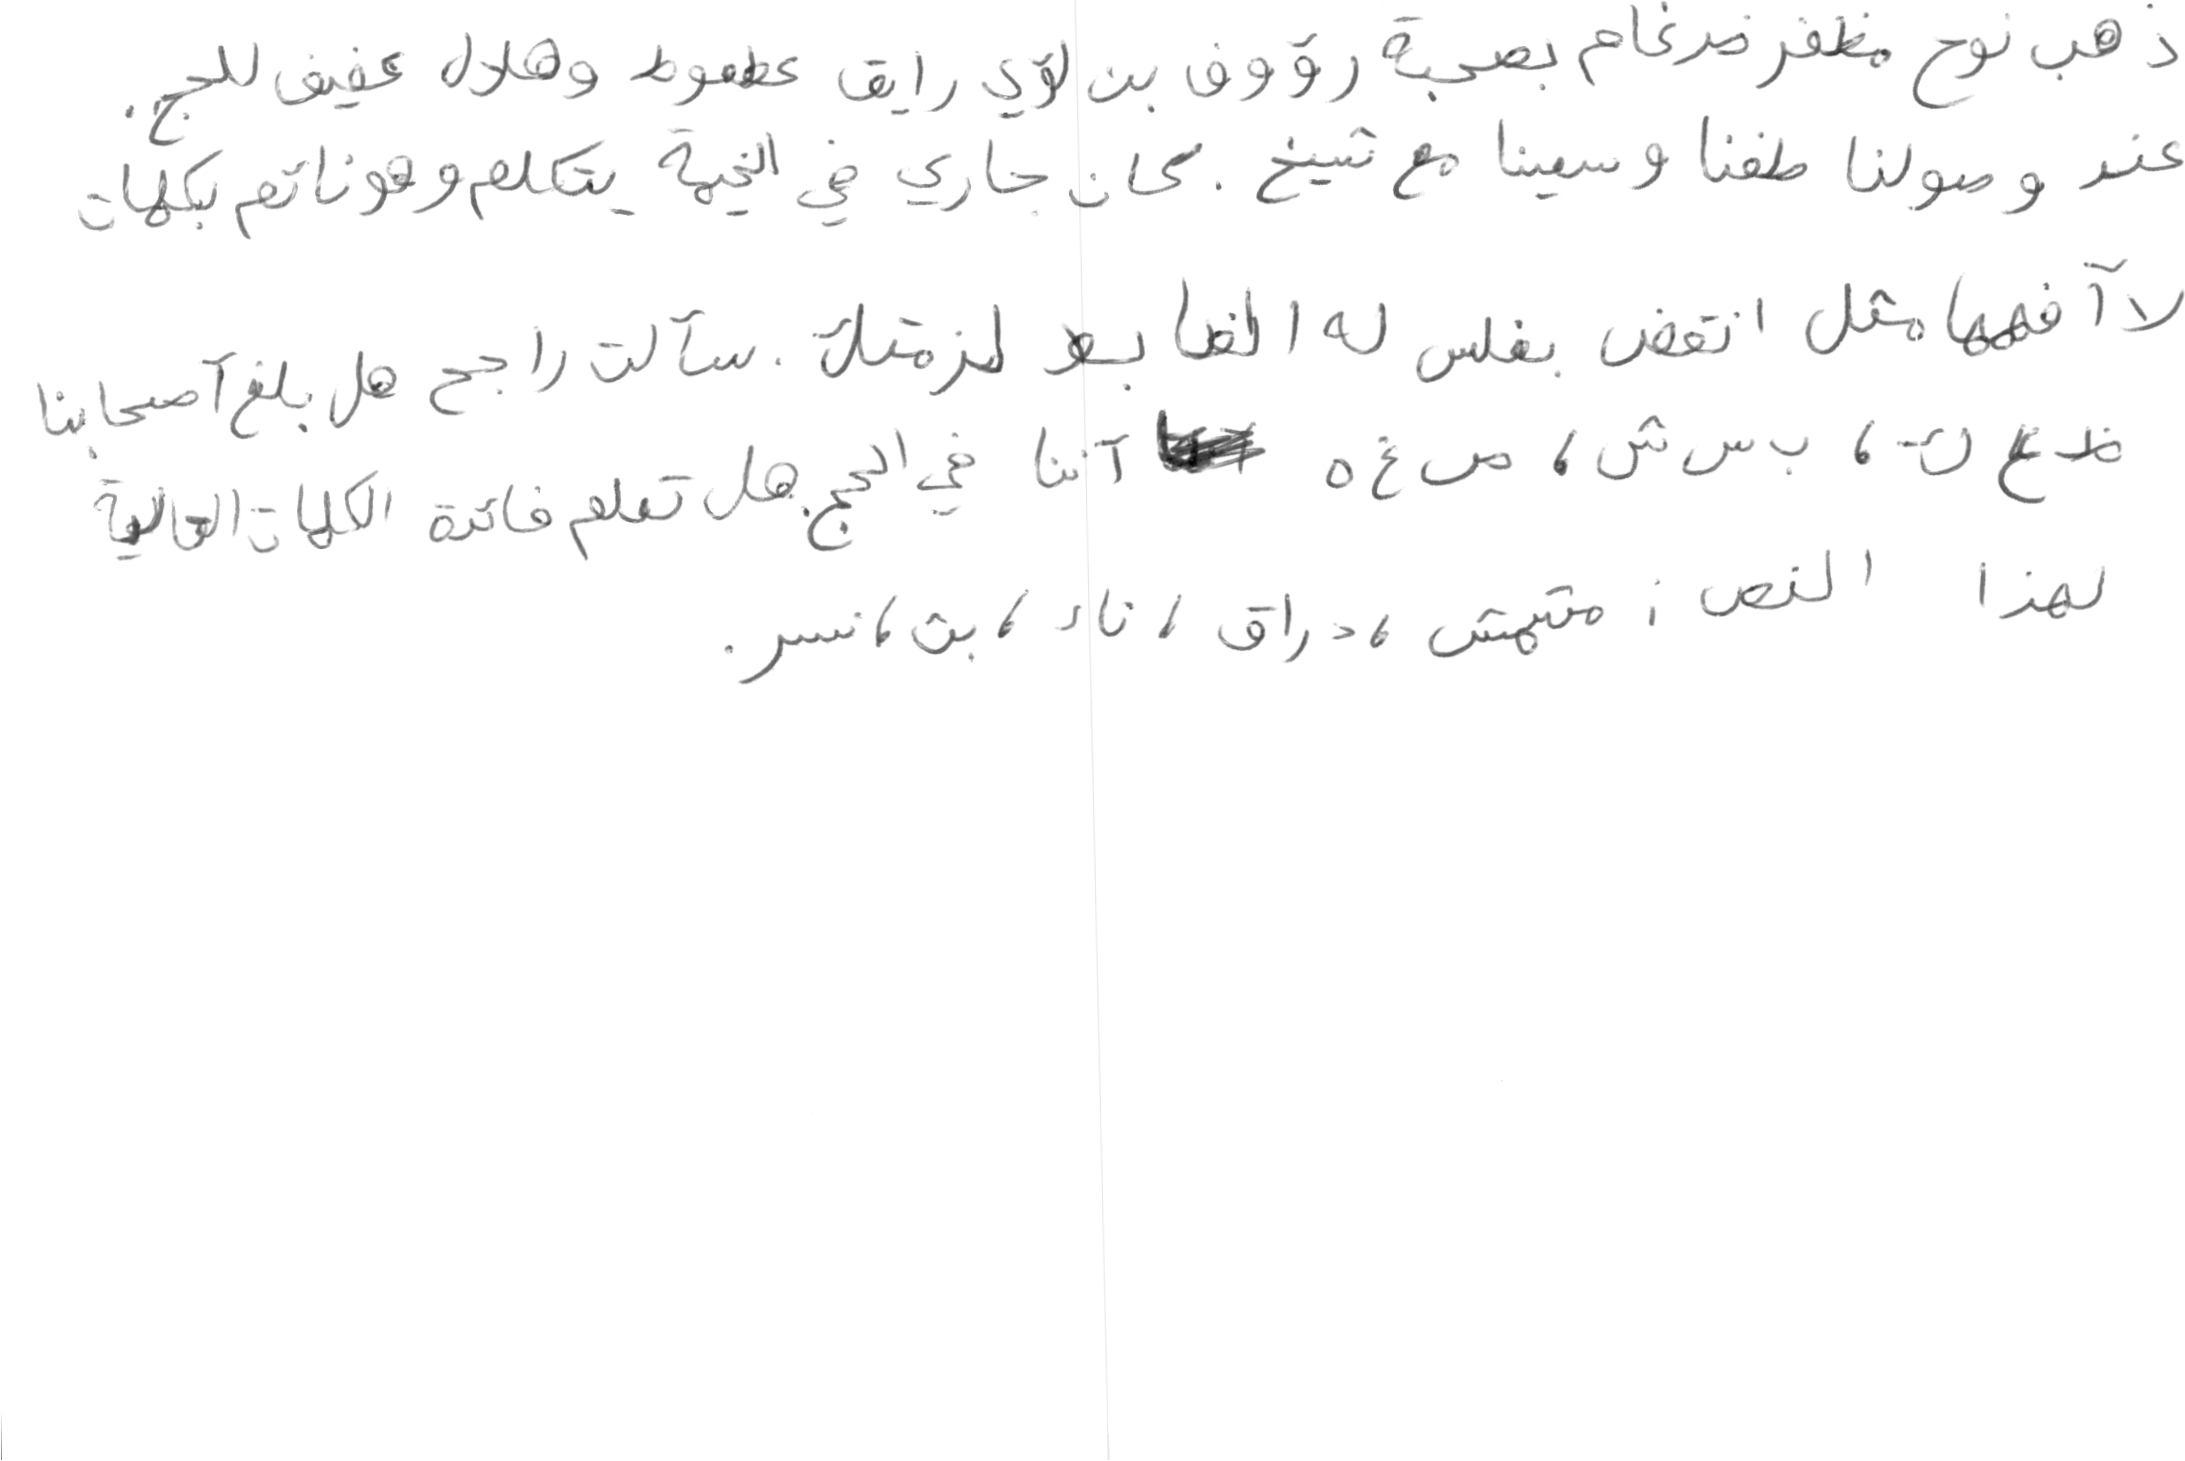 ذهب نوح مظفر ضرغام بصحبة رؤوف بن لؤي رايق عطعوط وهلال عفيف للحج.
عند وصولنا طفنا وسعينا مع شيخ. كان جاري في الخيمة يتكلم وهو نائم بكلمات
لا أفهمها مثل انتعض بغلس له الضابط لمزمتك. سألت راجح هل بلغ أصحابنا
ظ ع ئ، ب س ش، ص غ ه أننا في الحج. هل تعلم فائدة الكلمات التالية
لهذا النص: مشمش، دراق، ناء، بث، نسر.